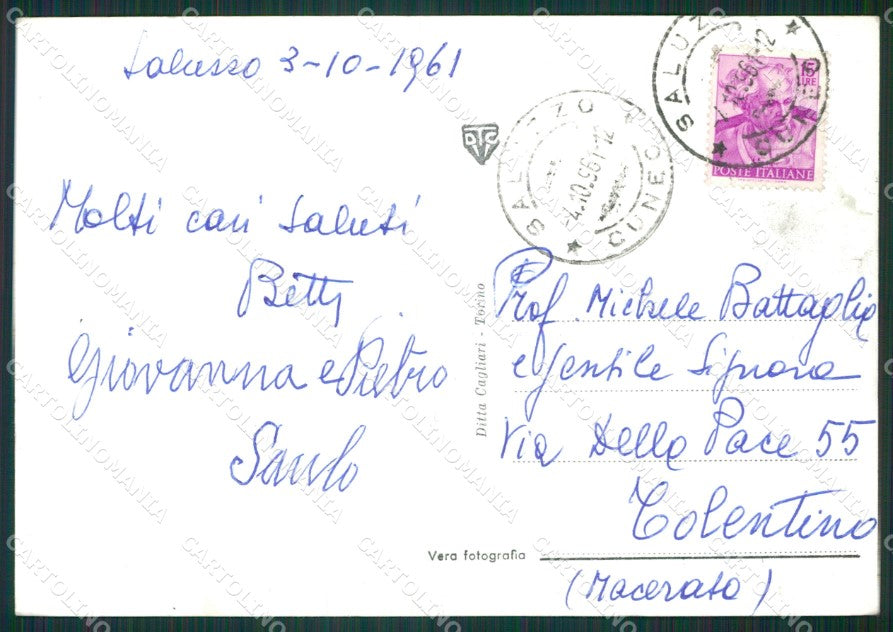 Saluzzo 3-10-1961
Molti cari saluti
Betty
Giovanna e Pietro
Saulo
DTC
Ditta Cagliari - Torino
Vera fotografia
SALUZZO CUNEO
-4.10.961-12
SALUZZO CUNEO
10.961-12
15 LIRE
POSTE ITALIANE
Prof. Michele Battaglia
e Gentile Signora
Via Della Pace 55
Tolentino
(Macerata)
CARTOLINOMANIA